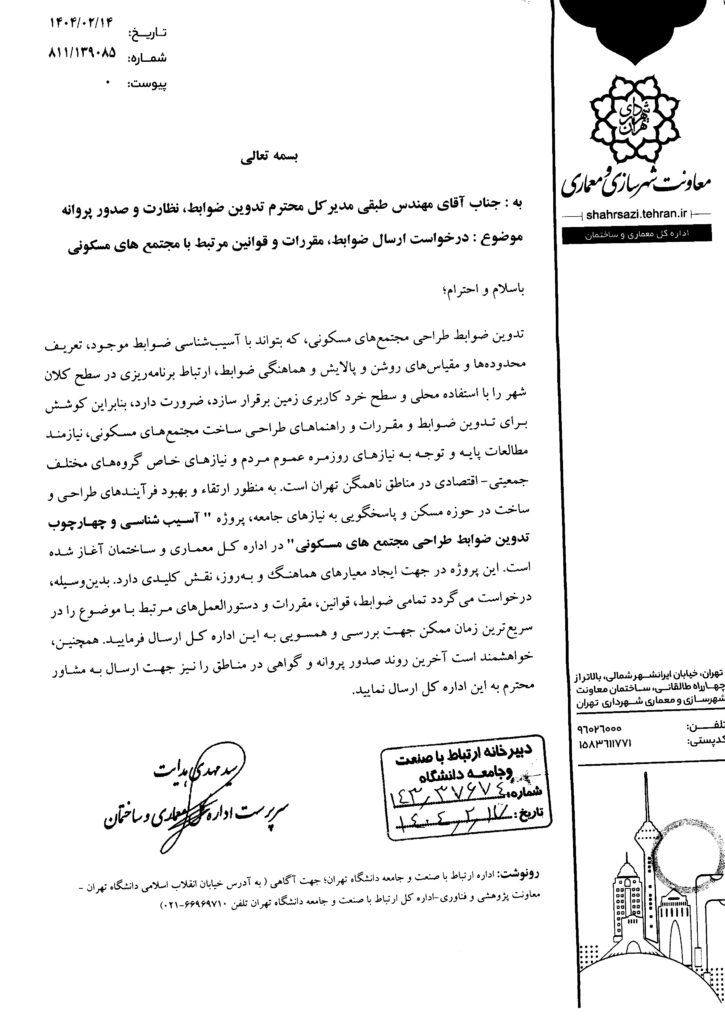 تاریخ: ۱۴۰۴/۰۲/۱۴
شماره: ۸۱۱/۱۳۹۰۸۵
پیوست: ۰
شهرداری
تهران
معاونت شهرسازی و معماری
shahrsazi.tehran.ir
اداره کل معماری و ساختمان
بسمه تعالی
به : جناب آقای مهندس طبقی مدیرکل محترم تدوین ضوابط، نظارت و صدور پروانه
موضوع : درخواست ارسال ضوابط، مقررات و قوانین مرتبط با مجتمع های مسکونی
باسلام و احترام؛
تدوین ضوابط طراحی مجتمع‌های مسکونی، که بتواند با آسیب‌شناسی ضوابط موجود، تعریف
محدوده‌ها و مقیاس‌های روشن و پالایش و هماهنگی ضوابط، ارتباط برنامه‌ریزی در سطح کلان
شهر را با استفاده محلی و سطح خرد کاربری زمین برقرار سازد، ضرورت دارد، بنابراین کوشش
برای تدوین ضوابط و مقررات و راهنماهای طراحی ساخت مجتمع‌های مسکونی، نیازمند
مطالعات پایه و توجه به نیازهای روزمره عموم مردم و نیازهای خاص گروه‌های مختلف
جمعیتی- اقتصادی در مناطق ناهمگن تهران است. به منظور ارتقاء و بهبود فرآیندهای طراحی و
ساخت در حوزه مسکن و پاسخگویی به نیازهای جامعه، پروژه " آسیب شناسی و چهارچوب
تدوین ضوابط طراحی مجتمع های مسکونی" در اداره کل معماری و ساختمان آغاز شده
است. این پروژه در جهت ایجاد معیارهای هماهنگ و به‌روز، نقش کلیدی دارد. بدین‌وسیله،
درخواست می‌گردد تمامی ضوابط، قوانین، مقررات و دستورالعمل‌های مرتبط با موضوع را در
سریع‌ترین زمان ممکن جهت بررسی و همسویی به این اداره کل ارسال فرمایید. همچنین،
خواهشمند است آخرین روند صدور پروانه و گواهی در مناطق را نیز جهت ارسال به مشاور
محترم به این اداره کل ارسال نمایید.
تهران، خیابان ایرانشهر شمالی، بالاتر از
چهارراه طالقانی، ساختمان معاونت
شهرسازی و معماری شهرداری تهران
تلفن: ۹۶۰۲۶۰۰۰
کدپستی: ۱۵۸۳۶۱۱۷۷۱
دبیرخانه ارتباط با صنعت
وجامعه دانشگاه
شماره: ۱۴۳,۳۷۶۷۴
تاریخ: ۱۴۰۴,۲,۱۷
سید مهدی هدایت
سرپرست اداره کل معماری و ساختمان
رونوشت: اداره ارتباط با صنعت و جامعه دانشگاه تهران؛ جهت آگاهی ( به آدرس خیابان انقلاب اسلامی دانشگاه تهران -
معاونت پژوهشی و فناوری-اداره کل ارتباط با صنعت و جامعه دانشگاه تهران تلفن ۶۶۹۶۹۷۱۰-۰۲۱)